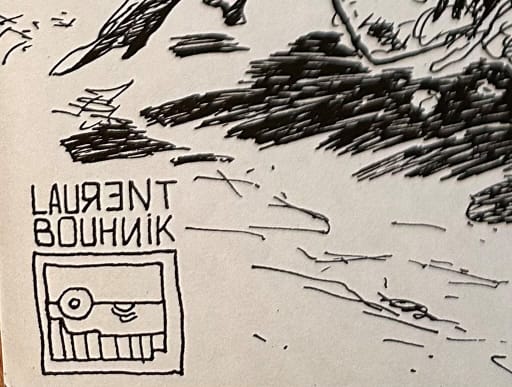 LAURENT
BOUHNIK